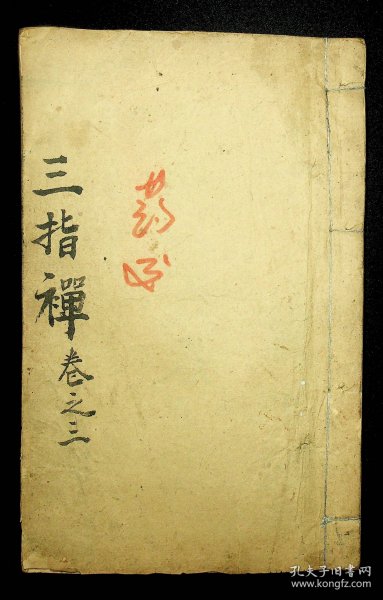 三指禪卷之三
孔夫子旧书网
www.kongfz.com